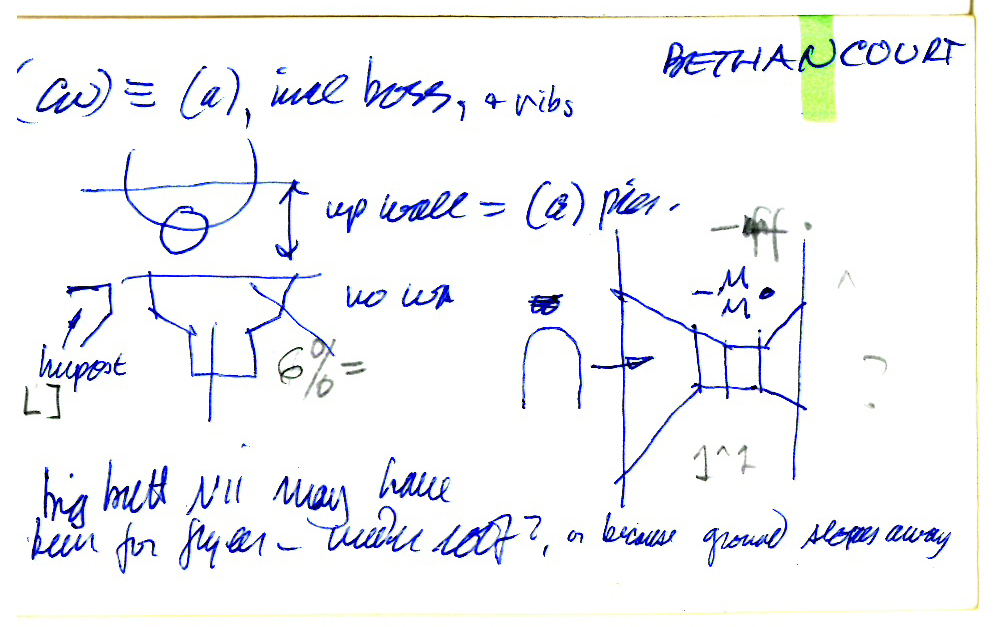 BETHANCOURT
(cw) ≡ (a), incl boss, + ribs
up wall = (a) pier.
no
impost
6 % =
big butt NII may have
been for flyer - under roof?, or because ground slopes away